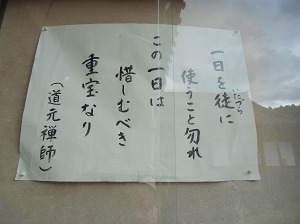 一日を徒に
いたづら
使うこと勿れ
この一日は
惜しむべき
重宝なり
(道元禅師)